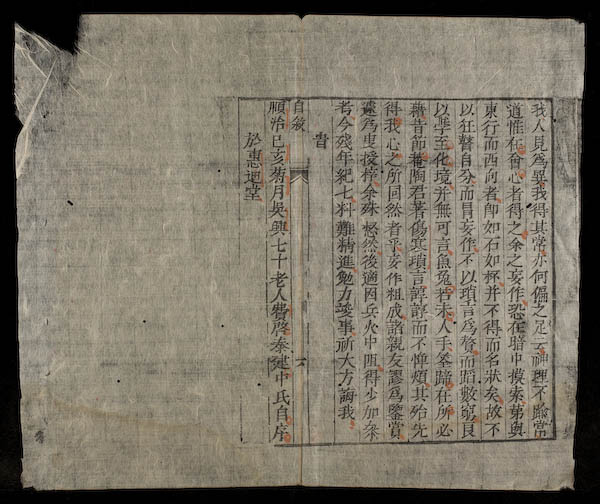 我人見為異我得其常亦何偏之足云神理不踰常
道惟在會心者得之余之妄作恐在暗中摸索第與
東行而西向者即如石如杯并不得而名狀矣故不
以狂瞽自分而冒妄作不以瑣言為贅而蹈數窮良
以學至化境并無可言魚兔若未入手筌蹄在所必
藉昔節菴陶君著傷寒瑣言諄諄而不憚煩其殆先
得我心之所同然者乎妄作粗成諸親友謬為鑒賞
遽為叟授梓余殊然後適因兵火中阻得少加參
考今殘年紀七料難精進勉力竣事祈大方誨我
旹
自敘
順治己亥菊月吳興七十老人費啓泰建中氏自序
於惠迪堂